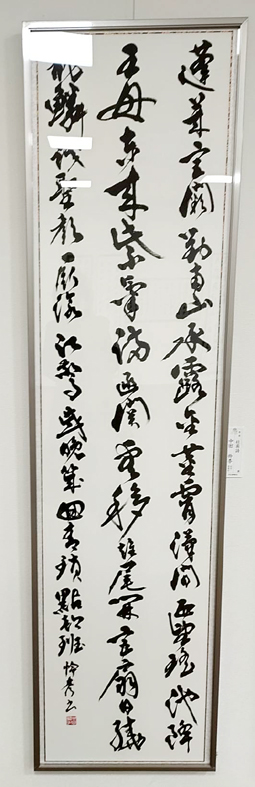 蓬萊宮闕對南山承露金莖霄漢間西望瑤池降
王母東來紫氣滿函關雲移雉尾開宮扇日繞
龍鱗識聖顏一臥滄江驚歲晚幾回青瑣點朝班